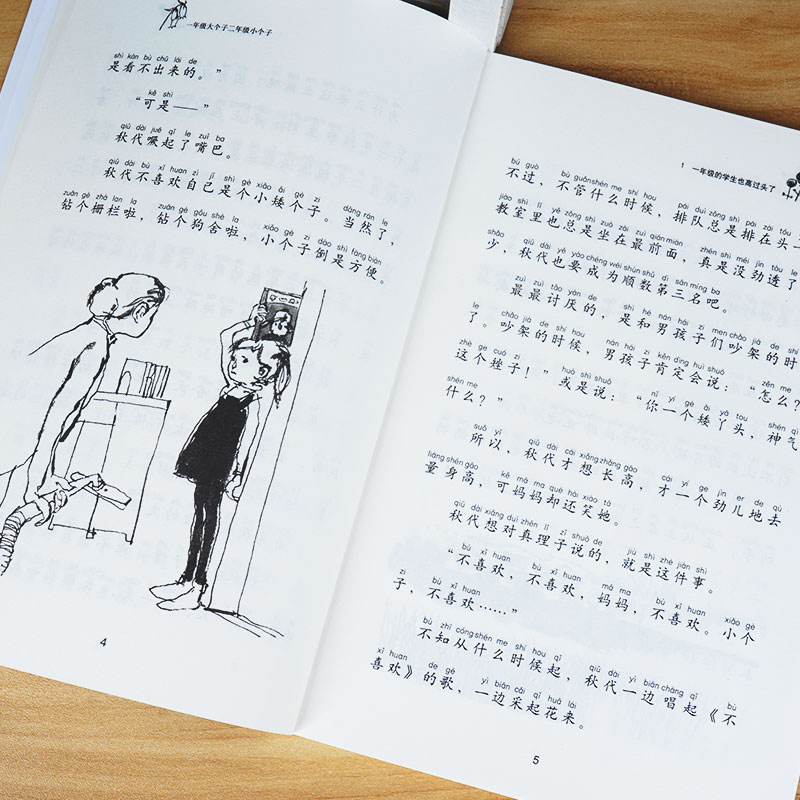 一年级大个子二年级小个子
shì kàn bù chū lái de
是看不出来的。”
kě shì
“可是——”
qiū dài juē qǐ le zuǐ ba
秋代噘起了嘴巴。
qiū dài bù xǐ huan zì jǐ shì gè xiǎo ǎi gè zi dāng rán le
秋代不喜欢自己是个小矮个子。当然了，
zuān gè zhà lan la zuān gè gǒu shè la xiǎo gè zi dào shì fāng biàn
钻个栅栏啦，钻个狗舍啦，小个子倒是方便。
4
1 一年级的学生也高过头了
bú guò bù guǎn shén me shí hou pái duì zǒng shì pái zài tóu
不过，不管什么时候，排队总是排在头一
jiào shì lǐ yě zǒng shì zuò zài zuì qián miàn zhēn shì méi jìn tòu le
教室里也总是坐在最前面，真是没劲透了
shǎo qiū dài yě yào chéng wéi shùn shǔ dì sān míng ba
少，秋代也要成为顺数第三名吧。
zuì zuì tǎo yàn de shì hé nán hái zi men chǎo jià de shí
最最讨厌的，是和男孩子们吵架的时
le chǎo jià de shí hou nán hái zi kěn dìng huì shuō zěn me
了。吵架的时候，男孩子肯定会说：“怎么？
zhè ge cuó zi huò shì shuō nǐ yí gè ǎi yā tou shén qì
这个矬子！”或是说：“你一个矮丫头，神气
shén me
什么？”
suǒ yǐ qiū dài cái xiǎng zhǎng gāo cái yí ge jìn er de qù
所以，秋代才想长高，才一个劲儿地去
liáng shēn gāo kě mā ma què hái xiào tā
量身高，可妈妈却还笑她。
qiū dài xiǎng duì zhēn lǐ zǐ shuō de jiù shì zhè jiàn shì
秋代想对真理子说的，就是这件事。
bù xǐ huan bù xǐ huan mā ma bù xǐ huan xiǎo gè
“不喜欢，不喜欢，妈妈，不喜欢。小个
zi bù xǐ huan
子，不喜欢……”
bù zhī cóng shén me shí hou qǐ qiū dài yì biān chàng qǐ bù
不知从什么时候起，秋代一边唱起《不
xǐ huan de gē yì biān cǎi qǐ huā lái
喜欢》的歌，一边采起花来。
5